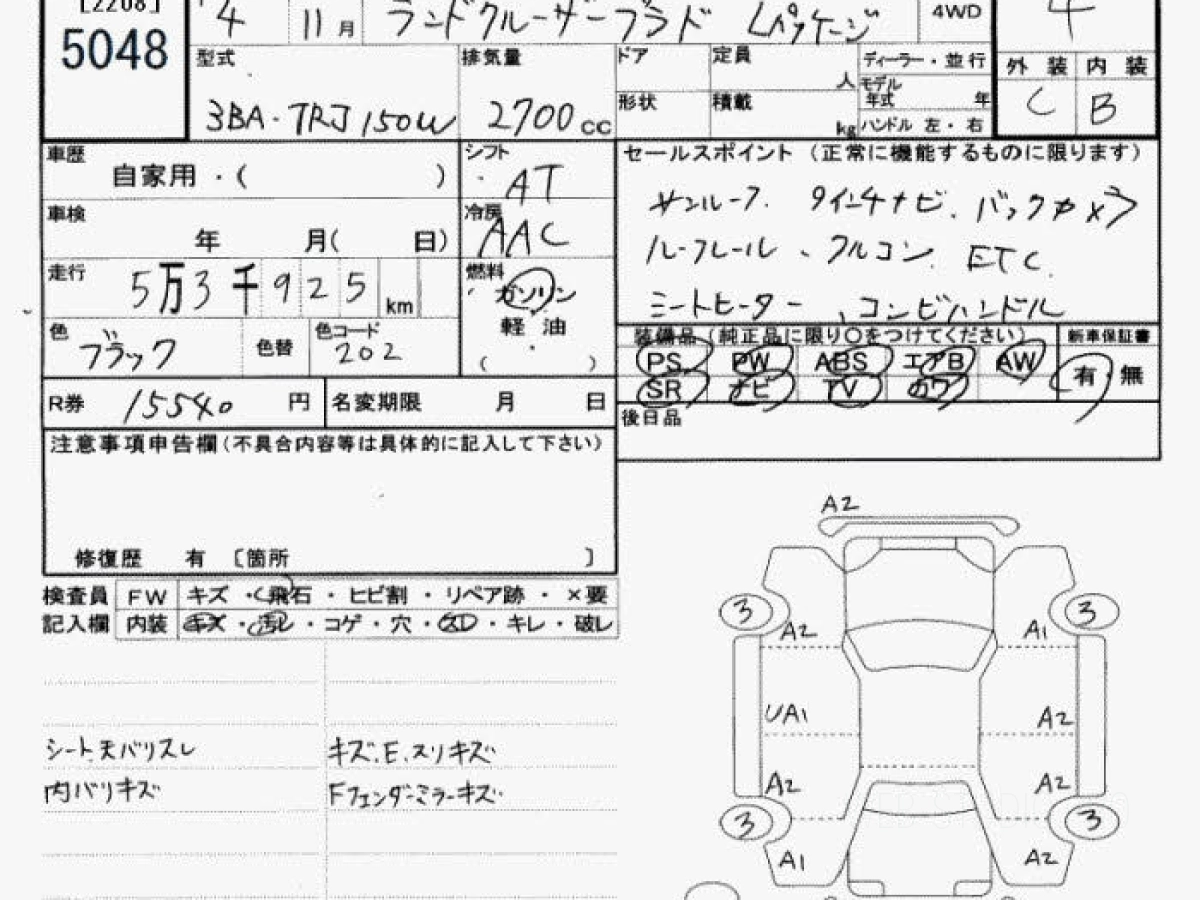 [2208]
5048
4 11月 ランドクルーザープラド Lパッケージ 4WD 4
型式 3BA-TRJ150W
排気量 2700cc
ドア 定員 人
形状 積載 kg
ディーラー・並行
モデル年式 年
ハンドル 左・右
外装 内装
C B
車歴 自家用・( )
シフト AT
車検 年 月( 日)
冷房 AAC
走行 5万3千925km
燃料 ガソリン
軽油
( )
色 ブラック 色替 色コード 202
R券 15540円 名変期限 月 日
セールスポイント(正常に機能するものに限ります)
サンルーフ. 9インチナビ. バックカメラ
ルーフレール、クルコン. ETC.
シートヒーター、コンビハンドル
装備品(純正品に限り○をつけてください) 新車保証書
PS PW ABS エアB AW 有・無
SR ナビ TV カワ
後日品
注意事項申告欄(不具合内容等は具体的に記入して下さい)
修復歴 有 〔箇所 〕
検査員 FW キズ・飛石・ヒビ割・リペア跡・×要
記入欄 内装 キズ・汚レ・コゲ・穴・スレ・キレ・破レ
シート.天バリスレ キズ.E.スリキズ
内バリキズ FフェンダーミラーキズA2
3 3
A2 A1
UA1 A2
A2 A2
3 3
A1 A2